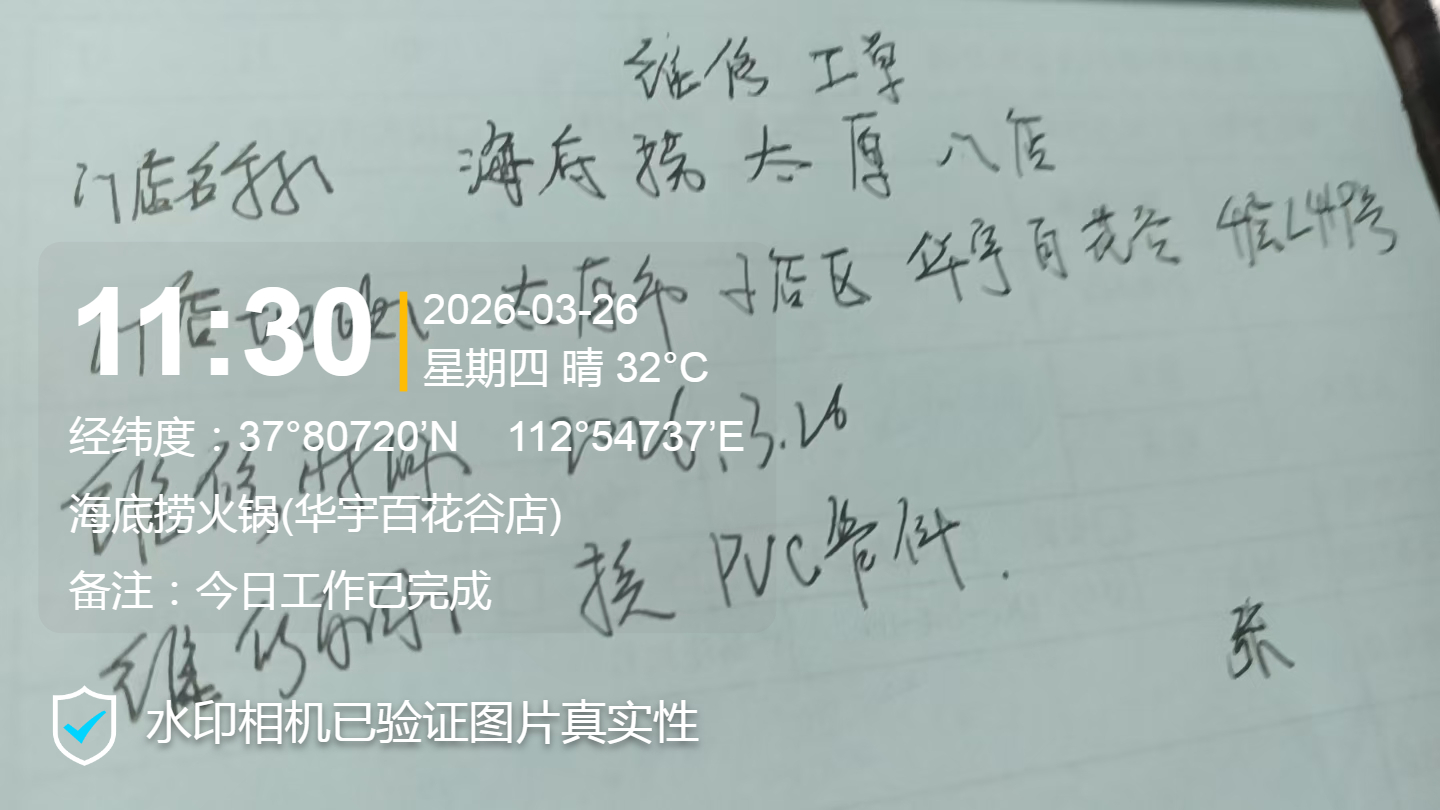 维修工单
门店名称 海底捞太原八店
门店地址 太原市小店区华宇百花谷
维修时间 2026.3.26
维修内容 换PVC管件.
张
11:30
2026-03-26
星期四 晴 32°C
经纬度：37°80720’N 112°54737’E
海底捞火锅(华宇百花谷店)
备注：今日工作已完成
水印相机已验证图片真实性